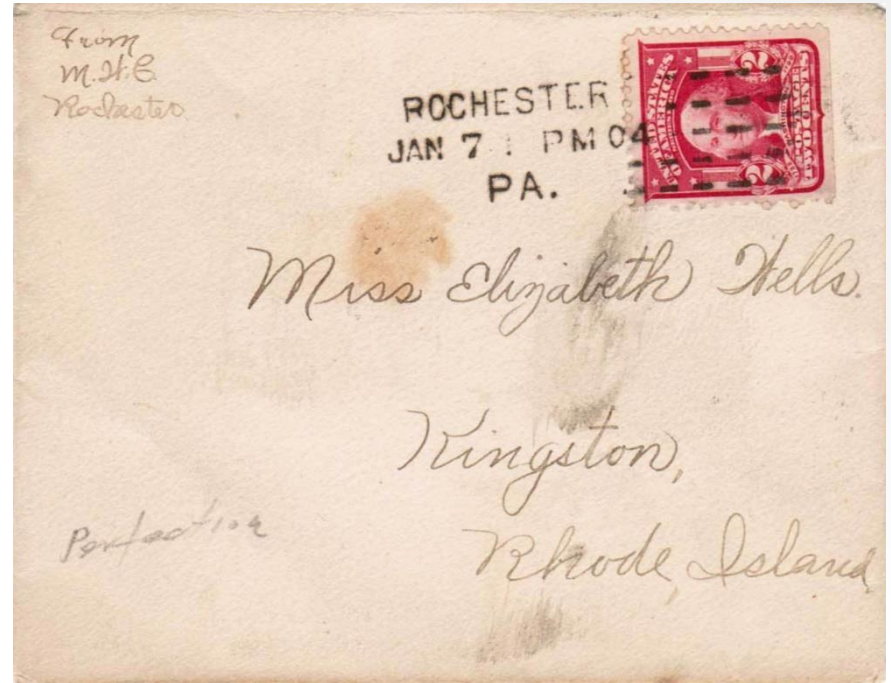 From
M.H.C.
Rochester
ROCHESTER
JAN 7 1 PM 04
PA.
UNITED STATES
OF AMERICA
2 2
POSTAGE
TWO CENTS
Miss Elizabeth Wells.
Kingston,
Rhode Island
Perfection